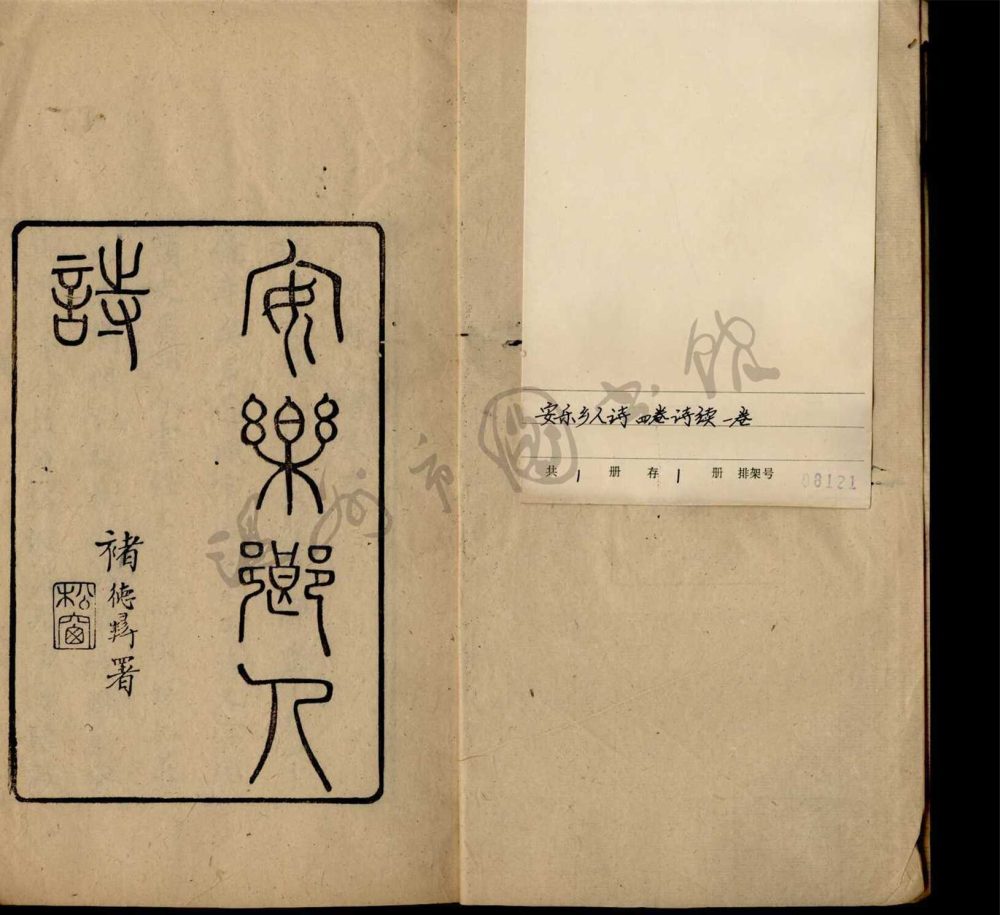 安樂鄉人
詩
褚德彝署
松窗
安乐乡人诗四卷诗续一卷
共 1 册 存 1 册 排架号
08121
市圖
館